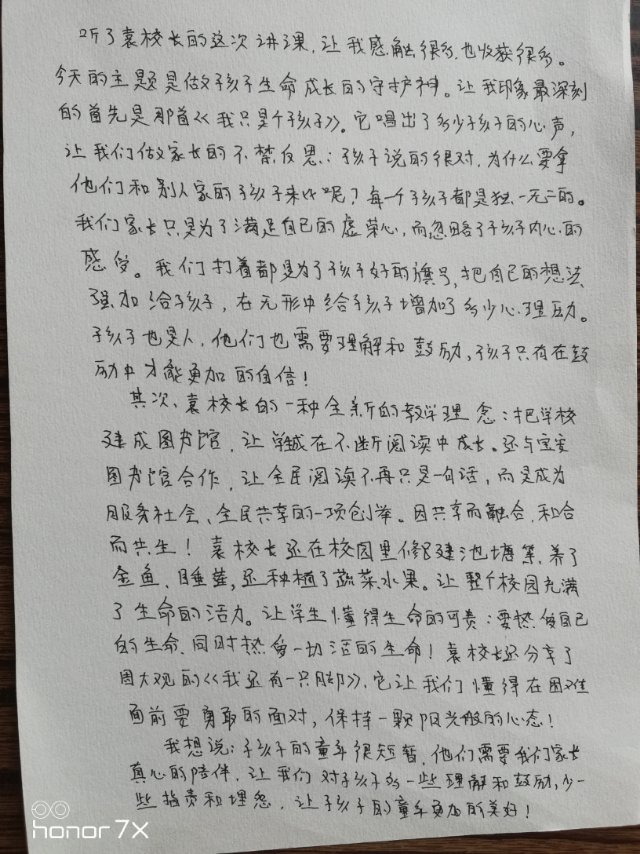 听了袁校长的这次讲课,让我感触很多,也收获很多。
今天的主题是做孩子生命成长的守护神。让我印象最深刻
的首先是那首《我只是个孩子》。它唱出了多少孩子的心声,
让我们做家长的不禁反思:孩子说的很对,为什么要拿
他们和别人家的孩子来比呢?每一个孩子都是独一无二的。
我们家长只是为了满足自己的虚荣心,而忽略了孩子内心的
感受。我们打着都是为了孩子好的旗号,把自己的想法
强加给孩子,在无形中给孩子增加了多少心理压力。
孩子也是人,他们也需要理解和鼓励,孩子只有在鼓
励中才能更加的自信!
其次,袁校长的一种全新的教学理念:把学校
建成图书馆,让学生在不断阅读中成长。还与宝安
图书馆合作,让全民阅读不再只是一句话,而是成为
服务社会、全民共享的一项创举。因共享而融合,和合
而共生!袁校长还在校园里修建池塘,养了
金鱼、睡莲,还种植了蔬菜水果。让整个校园充满
了生命的活力。让学生懂得生命的可贵:要热爱自己
的生命,同时热爱一切活的生命!袁校长还分享了
周大观的《我还有一只脚》,它让我们懂得在困难
面前要勇敢的面对,保持一颗阳光般的心态!
我想说:孩子的童年很短暂,他们需要我们家长
真心的陪伴,让我们对孩子多一些理解和鼓励,少一
些指责和埋怨,让孩子的童年更加的美好!
honor 7X